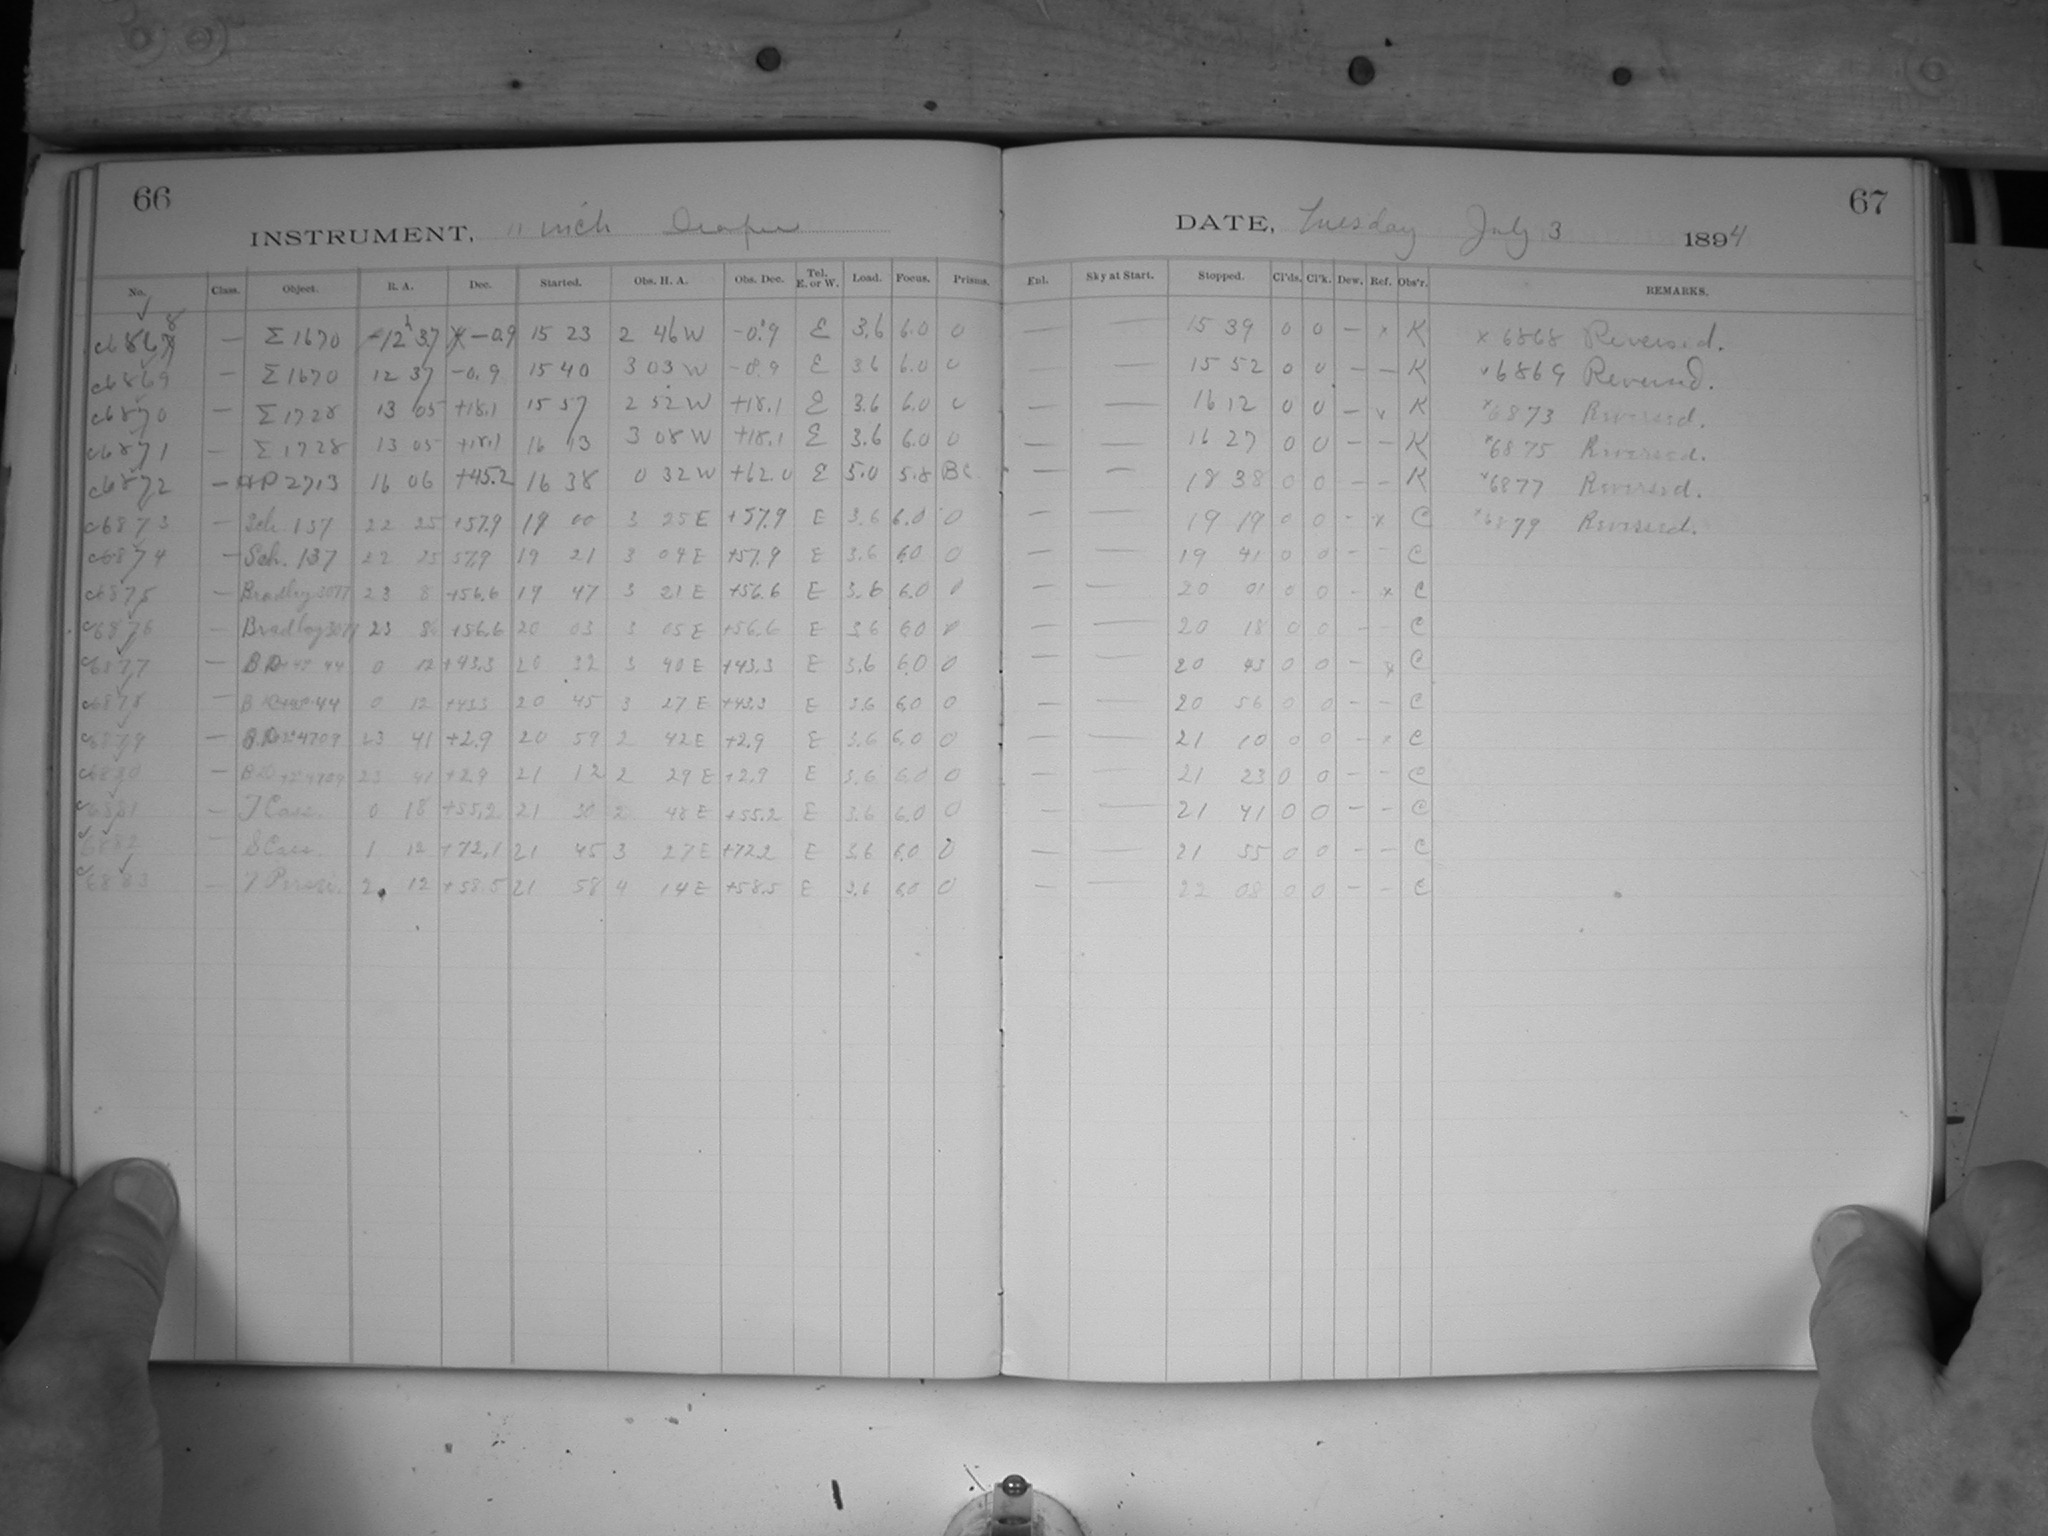 66
INSTRUMENT, 11 inch Draper
No. Class. Object. R. A. Dec. Started. Obs. H. A. Obs. Dec. Tel. E. or W. Load. Focus. Prisms.
c6868 — Σ 1670 12h 37 —0.9 15 23 2 46 W -0.9 E 3.6 6.0 0
c6869 — Σ 1670 12 37 -0.9 15 40 3 03 W -0.9 E 3.6 6.0 0
c6870 — Σ 1728 13 05 +18.1 15 57 2 52 W +18.1 E 3.6 6.0 0
c6871 — Σ 1728 13 05 +18.1 16 13 3 08 W +18.1 E 3.6 6.0 0
c6872 — 2713 16 06 +45.2 16 38 0 32 W +62.0 E 5.0 5.8 BC
c6873 — Sch. 137 22 25 +57.9 19 00 3 25 E +57.9 E 3.6 6.0 0
c6874 — Sch. 137 22 25 57.9 19 21 3 04 E +57.9 E 3.6 6.0 0
c6875 — Bradley 3077 23 8 +56.6 19 47 3 21 E +56.6 E 3.6 6.0 0
c6876 — Bradley 3077 23 8 +56.6 20 03 3 05 E +56.6 E 3.6 6.0 0
c6877 — BD+43° 44 0 12 +43.3 20 32 3 40 E +43.3 E 3.6 6.0 0
c6878 — BD+43° 44 0 12 +43.3 20 45 3 27 E +43.3 E 3.6 6.0 0
c6879 — B.D.+2°4709 23 41 +2.9 20 59 2 42 E +2.9 E 3.6 6.0 0
c6880 — BD+2°4709 23 41 +2.9 21 12 2 29 E +2.9 E 3.6 6.0 0
c6881 — T Cass. 0 18 +55.2 21 30 2 48 E +55.2 E 3.6 6.0 0
c6882 — S Cass. 1 12 +72.1 21 45 3 27 E +72.2 E 3.6 6.0 0
c6883 — T Persei. 2 12 +58.5 21 58 4 14 E +58.5 E 3.6 6.0 0
67
DATE, Tuesday July 3 1894
Enl. Sky at Start. Stopped. Cl'ds. Cl'k. Dew. Ref. Obs'r. REMARKS.
— — 15 39 0 0 — x K x 6868 Reversed.
— — 15 52 0 0 — — K x 6869 Reversed.
— — 16 12 0 0 — x K x 6873 Reversed.
— — 16 27 0 0 — — K x 6875 Reversed.
— — 18 38 0 0 — — K x 6877 Reversed.
— — 19 19 0 0 — x C x 6879 Reversed.
— — 19 41 0 0 — — C
— — 20 01 0 0 — x C
— — 20 18 0 0 — — C
— — 20 43 0 0 — x C
— — 20 56 0 0 — — C
— — 21 10 0 0 — x C
— — 21 23 0 0 — — C
— — 21 41 0 0 — — C
— — 21 55 0 0 — — C
— — 22 08 0 0 — — C